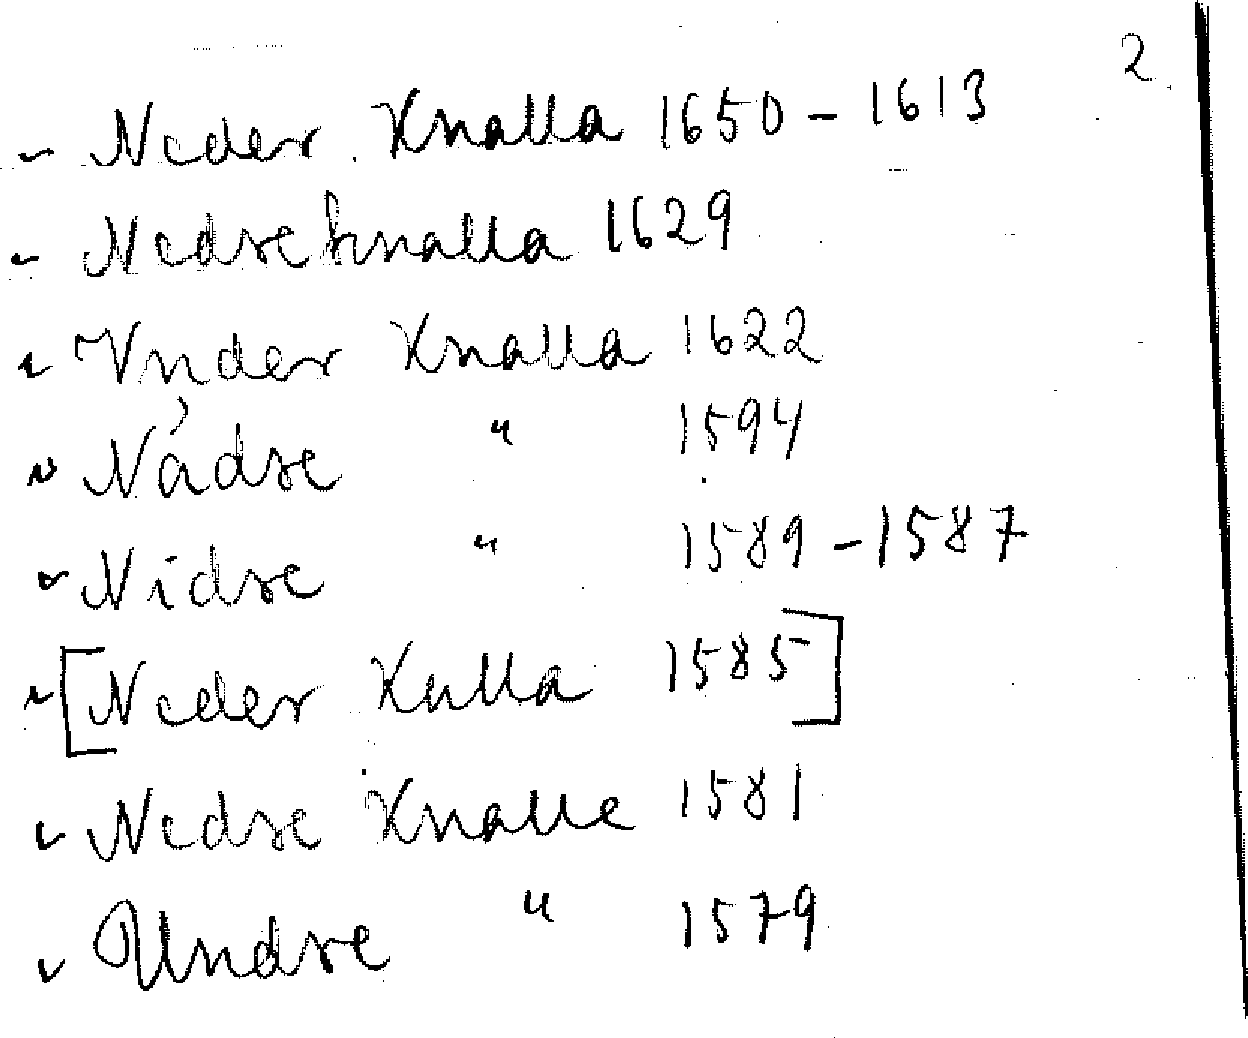 2.
" Neder Knalla 1650 - 1613
" Nedreknalla 1629
" Vnder Knalla 1622
" Nådre " 1594
" Nidre " 1589 - 1587
" [Neder Kulla 1585]
" Nedre Knalle 1581
" Undre " 1579